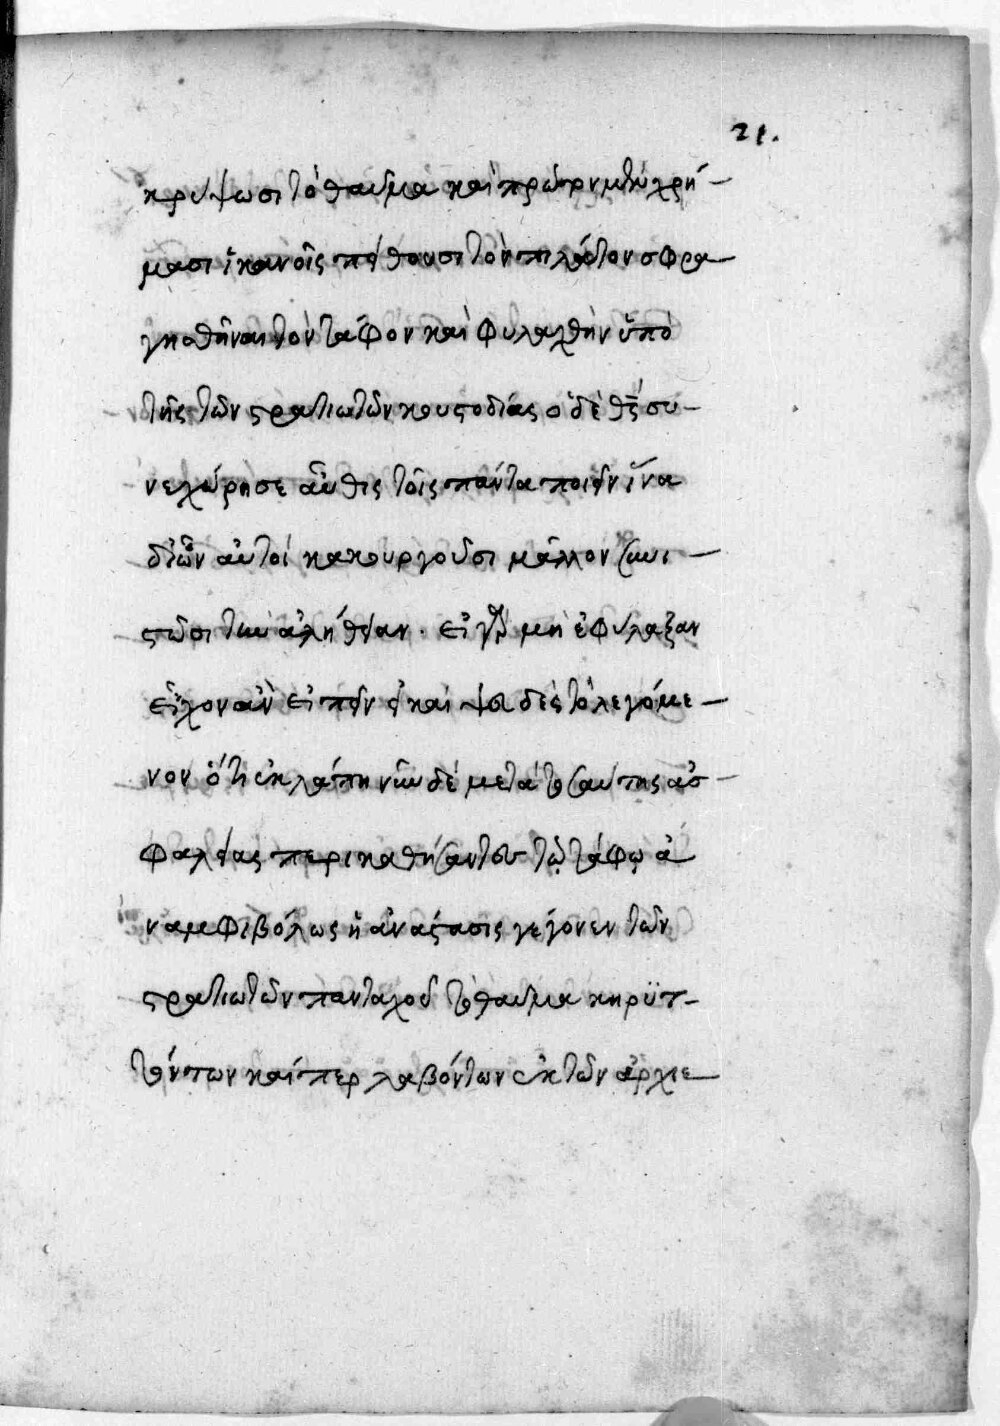 21.
κρύψωσι τὸ θαῦμα καὶ πρώτον μὲν χρή-
μασι ἱκανοῖς πείθουσι τὸν πιλάτον σφρα-
γισθῆναι τὸν τάφον καὶ φυλαχθῆν ὑπὸ
τῆς τῶν στρατιωτῶν κουστοδίας ὁ δὲ θς συ-
νεχώρησε αὖθις τοῖς πάντα ποιεῖν ἵνα
διῶν αὐτοὶ κακουργοῦσι μᾶλλον συνι-
στῶσι τὴν ἀλήθειαν. εἰ γὰρ μὴ ἐφύλαξαν
εἶχον ἂν εἰπεῖν εἰ καὶ ψευδὲς τὸ λεγόμε-
νον ὅτι ἐκλάπη νῦν δὲ μετὰ τοσαύτης ἀσ-
φαλείας περικαθήσαντου τῷ τάφῳ ἀ
ναμφιβόλως ἡ ἀνάστασις γέγονεν τῶν
στρατιωτῶν πανταχοῦ τὸ θαῦμα κηρϋτ-
τόντων καίπερ λαβόντων ἐκ τῶν ἀρχιε-